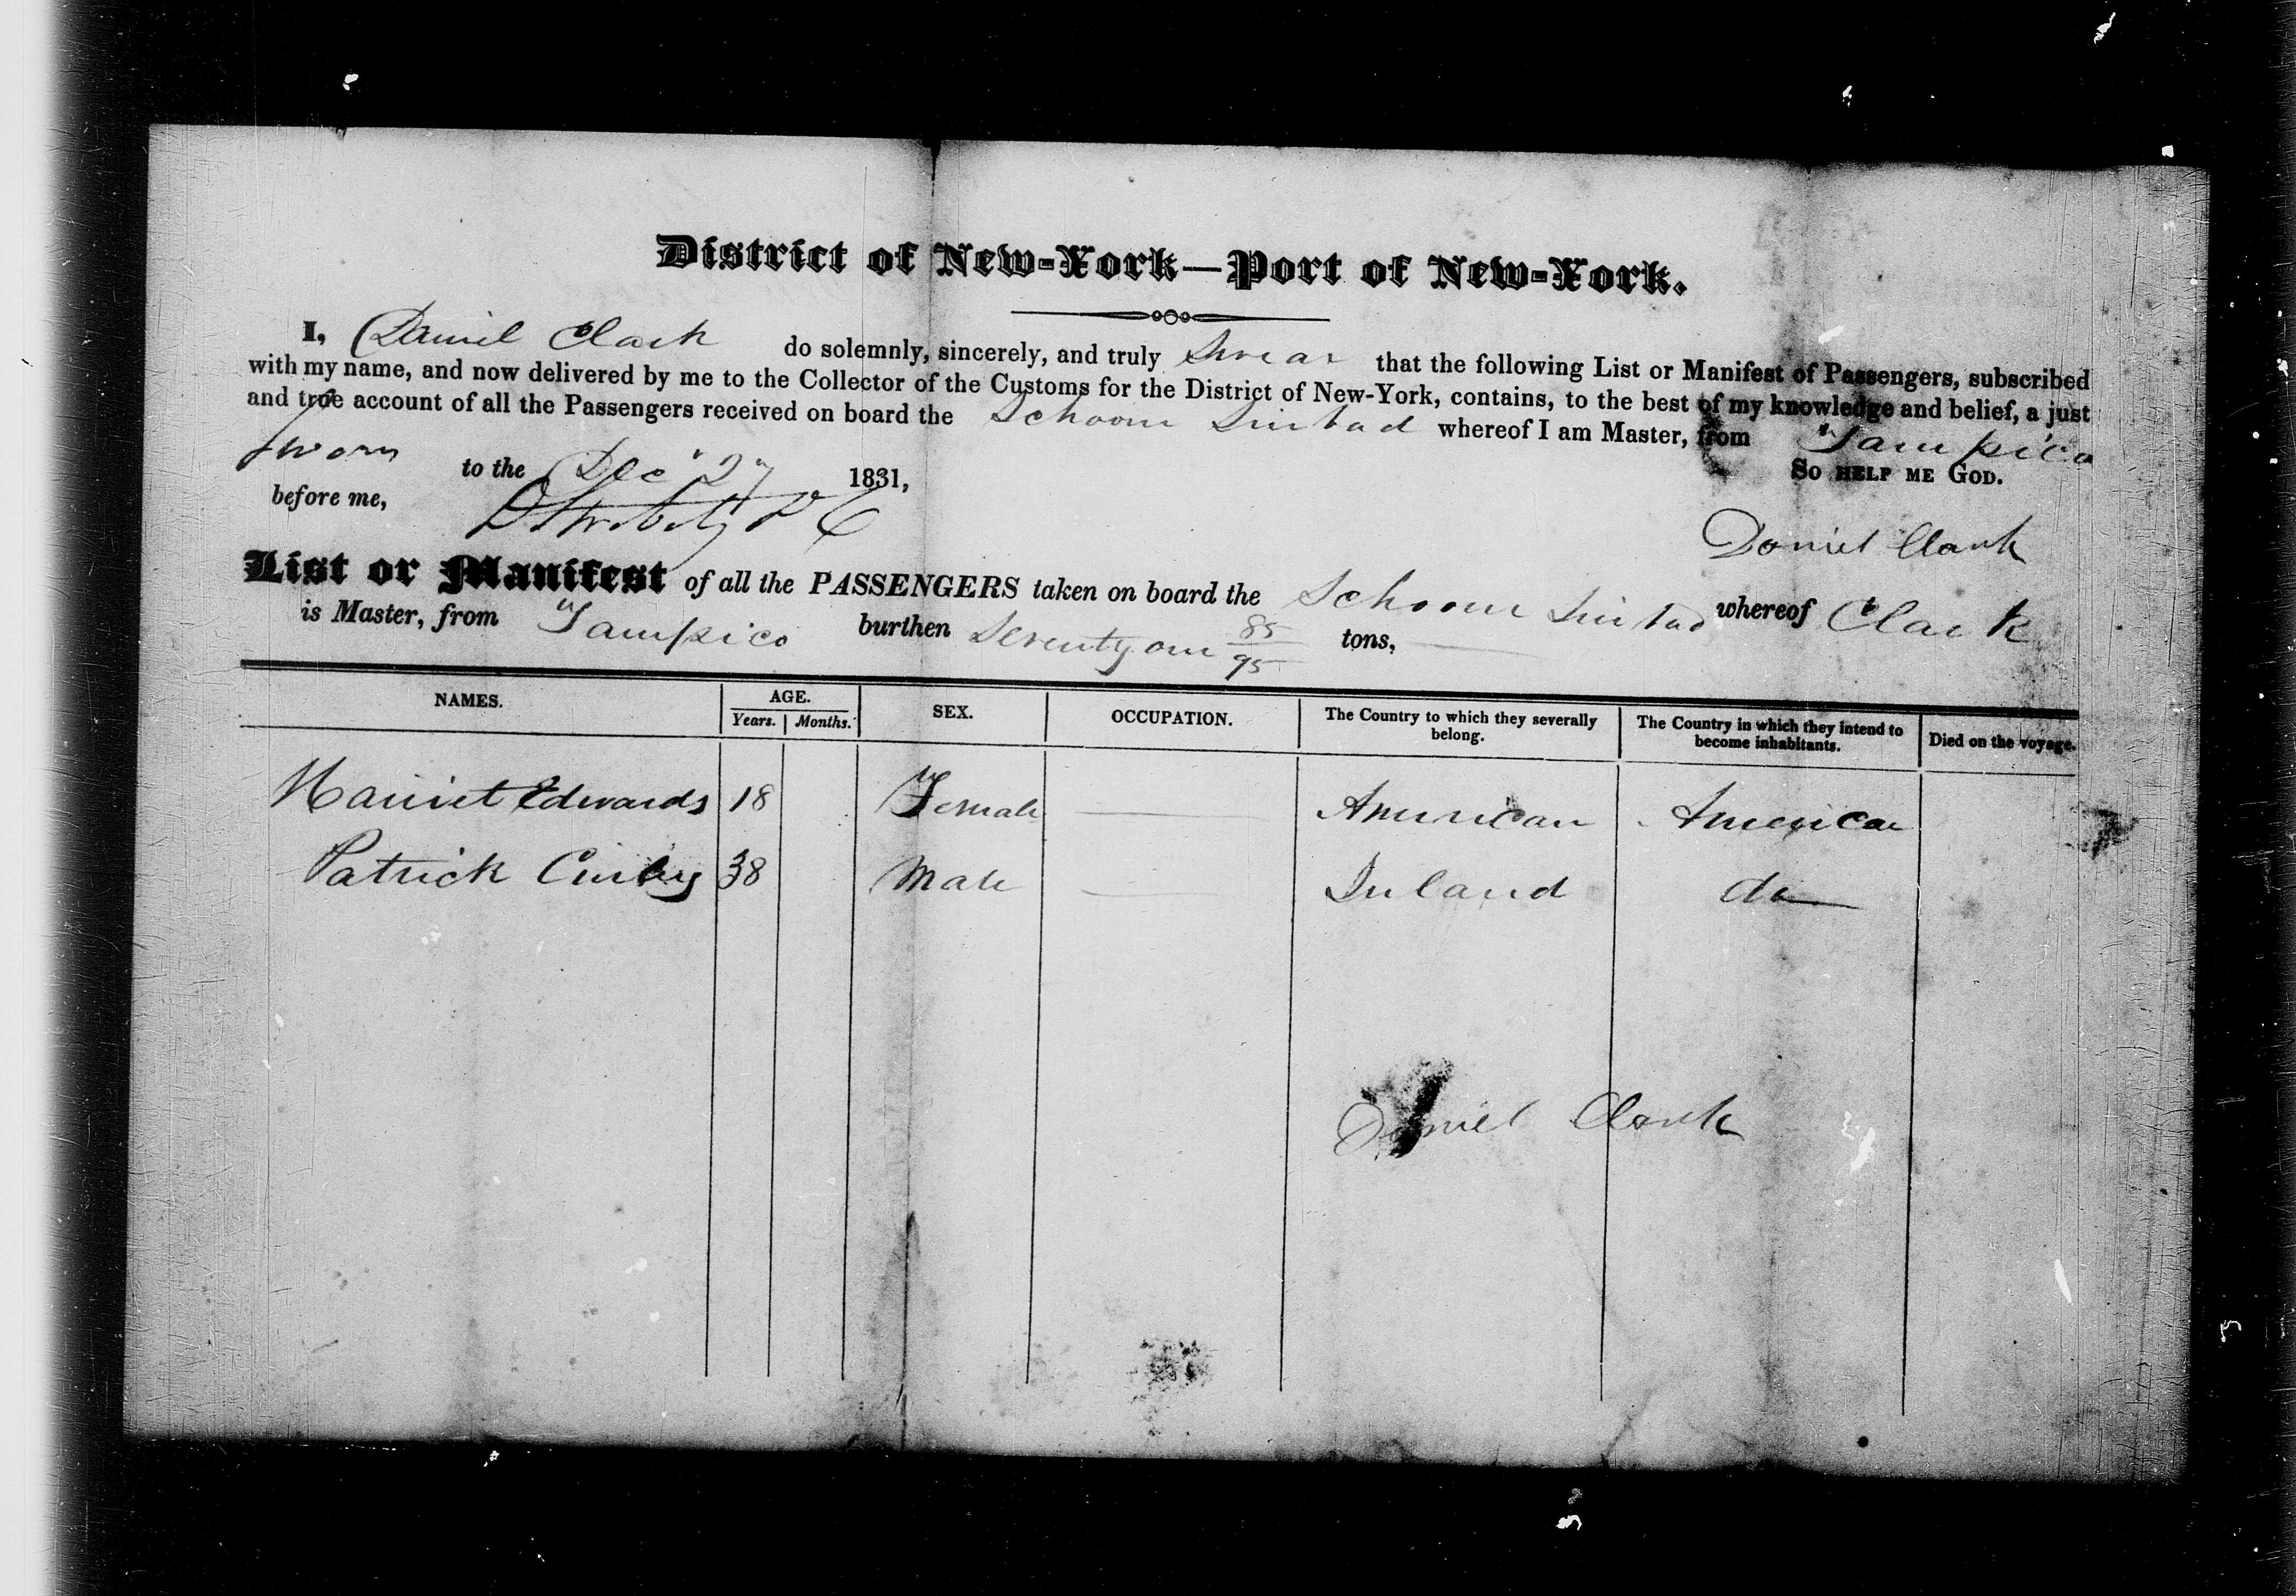 District of New-York—Port of New-York.
I, Daniel Clark do solemnly, sincerely, and truly Swear that the following List or Manifest of Passengers, subscribed
with my name, and now delivered by me to the Collector of the Customs for the District of New-York, contains, to the best of my knowledge and belief, a just
and true account of all the Passengers received on board the Schoonr Sinbad whereof I am Master, from Tampico
Sworn to the Dec 27 1831, So help me God.
before me,
Daniel Clark
List or Manifest of all the PASSENGERS taken on board the Schoonr Sinbad whereof Clark
is Master, from Tampico burthen Seventy one 85/95 tons,
NAMES. AGE. Years. Months. SEX. OCCUPATION. The Country to which they severally belong. The Country in which they intend to become inhabitants. Died on the voyage.
Harriet Edwards 18 Female American America
Patrick 38 Male Ireland do
Daniel Clark